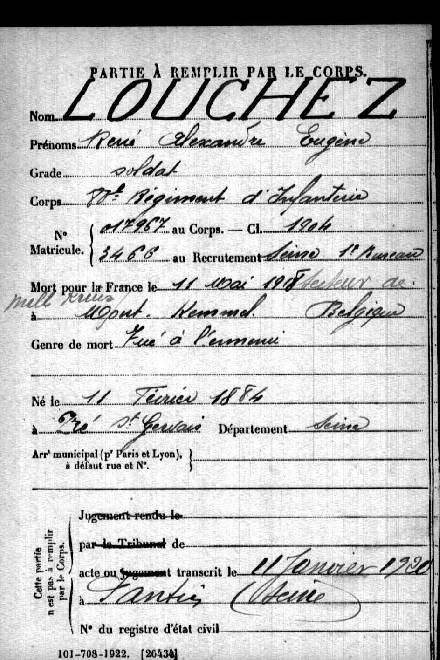 PARTIE À REMPLIR PAR LE CORPS.
Nom LOUCHEZ
Prénoms René Alexandre Eugène
Grade soldat
Corps Régiment d'Infanterie
N° Matricule. { 017967 au Corps. — Cl. 1904
3466 au Recrutement Seine 1r Bureau
Mort pour la France le 11 Mai 1918 secteur de
à Mont-Kemmel Belgique
Genre de mort Tué à l'ennemi
Né le 11 Février 1884
à Pré St Gervais Département Seine
Arrt municipal (pr Paris et Lyon), à défaut rue et N°. }
Cette partie n'est pas à remplir par le Corps.
Jugement rendu le
par le Tribunal de
acte ou jugement transcrit le 11 Janvier 1920
à Pantin (Seine)
N° du registre d'état civil
101-708-1922. [26434]